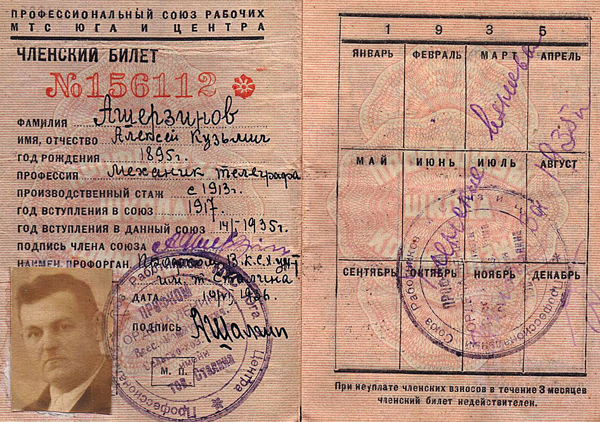 ПРОФЕССИОНАЛЬНЫЙ СОЮЗ РАБОЧИХ
МТС ЮГА И ЦЕНТРА
ЧЛЕНСКИЙ БИЛЕТ
№156112
ФАМИЛИЯ Ашерзинов
ИМЯ, ОТЧЕСТВО Алексей Кузьмич
ГОД РОЖДЕНИЯ 1895г.
ПРОФЕССИЯ Механик телеграфа
ПРОИЗВОДСТВЕННЫЙ СТАЖ с 1913г.
ГОД ВСТУПЛЕНИЯ В СОЮЗ 1917.
ГОД ВСТУПЛЕНИЯ В ДАННЫЙ СОЮЗ 14/I 1935г.
ПОДПИСЬ ЧЛЕНА СОЮЗА
НАИМЕН. ПРОФОРГАН.
им. т. Сталина
ДАТА
ПОДПИСЬ
М. П.
тов. Сталина
1 9 3 5
ЯНВАРЬ ФЕВРАЛЬ МАРТ АПРЕЛЬ
МАЙ ИЮНЬ ИЮЛЬ АВГУСТ
СЕНТЯБРЬ ОКТЯБРЬ НОЯБРЬ ДЕКАБРЬ
При неуплате членских взносов в течение 3 месяцев
членский билет недействителен.